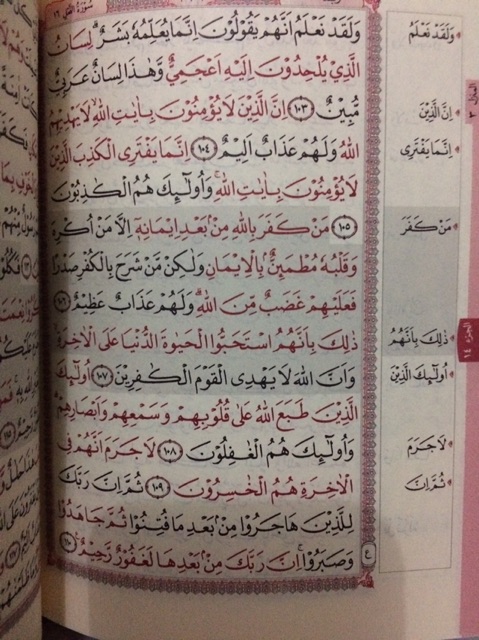 سُوْرَةُ النَّحْل ١٦
وَلَقَدْ نَعْلَمُ اَنَّهُمْ يَقُوْلُوْنَ اِنَّمَا يُعَلِّمُهٗ بَشَرٌ ؕ لِسَانُ
الَّذِيْ يُلْحِدُوْنَ اِلَيْهِ اَعْجَمِيٌّ وَّهٰذَا لِسَانٌ عَرَبِيٌّ
مُّبِيْنٌ ﴿١٠٣﴾ اِنَّ الَّذِيْنَ لَا يُؤْمِنُوْنَ بِاٰيٰتِ اللّٰهِ ۙ لَا يَهْدِيْهِمُ
اللّٰهُ وَلَهُمْ عَذَابٌ اَلِيْمٌ ﴿١٠٤﴾ اِنَّمَا يَفْتَرِي الْكَذِبَ الَّذِيْنَ
لَا يُؤْمِنُوْنَ بِاٰيٰتِ اللّٰهِ ۚ وَاُولٰٓئِكَ هُمُ الْكٰذِبُوْنَ
﴿١٠٥﴾ مَنْ كَفَرَ بِاللّٰهِ مِنْۢ بَعْدِ اِيْمَانِهٖٓ اِلَّا مَنْ اُكْرِهَ
وَقَلْبُهٗ مُطْمَئِنٌّۢ بِالْاِيْمَانِ وَلٰكِنْ مَّنْ شَرَحَ بِالْكُفْرِ صَدْرًا
فَعَلَيْهِمْ غَضَبٌ مِّنَ اللّٰهِ ۚ وَلَهُمْ عَذَابٌ عَظِيْمٌ ﴿١٠٦﴾
ذٰلِكَ بِاَنَّهُمُ اسْتَحَبُّوا الْحَيٰوةَ الدُّنْيَا عَلَى الْاٰخِرَةِ ۙ
وَاَنَّ اللّٰهَ لَا يَهْدِي الْقَوْمَ الْكٰفِرِيْنَ ﴿١٠٧﴾ اُولٰٓئِكَ
الَّذِيْنَ طَبَعَ اللّٰهُ عَلٰى قُلُوْبِهِمْ وَسَمْعِهِمْ وَاَبْصَارِهِمْ ۚ
وَاُولٰٓئِكَ هُمُ الْغٰفِلُوْنَ ﴿١٠٨﴾ لَا جَرَمَ اَنَّهُمْ فِي
الْاٰخِرَةِ هُمُ الْخٰسِرُوْنَ ﴿١٠٩﴾ ثُمَّ اِنَّ رَبَّكَ
لِلَّذِيْنَ هَاجَرُوْا مِنْۢ بَعْدِ مَا فُتِنُوْا ثُمَّ جَاهَدُوْا
وَصَبَرُوْٓا ۙ اِنَّ رَبَّكَ مِنْۢ بَعْدِهَا لَغَفُوْرٌ رَّحِيْمٌ ﴿١١٠﴾
ع
وَلَقَدْ نَعْلَمُ
اِنَّ الَّذِيْنَ
اِنَّمَا يَفْتَرِي
مَنْ كَفَرَ
ذٰلِكَ بِاَنَّهُمُ
اُولٰٓئِكَ الَّذِيْنَ
لَا جَرَمَ
ثُمَّ اِنَّ
المنزل ٣
الجزء ١٤